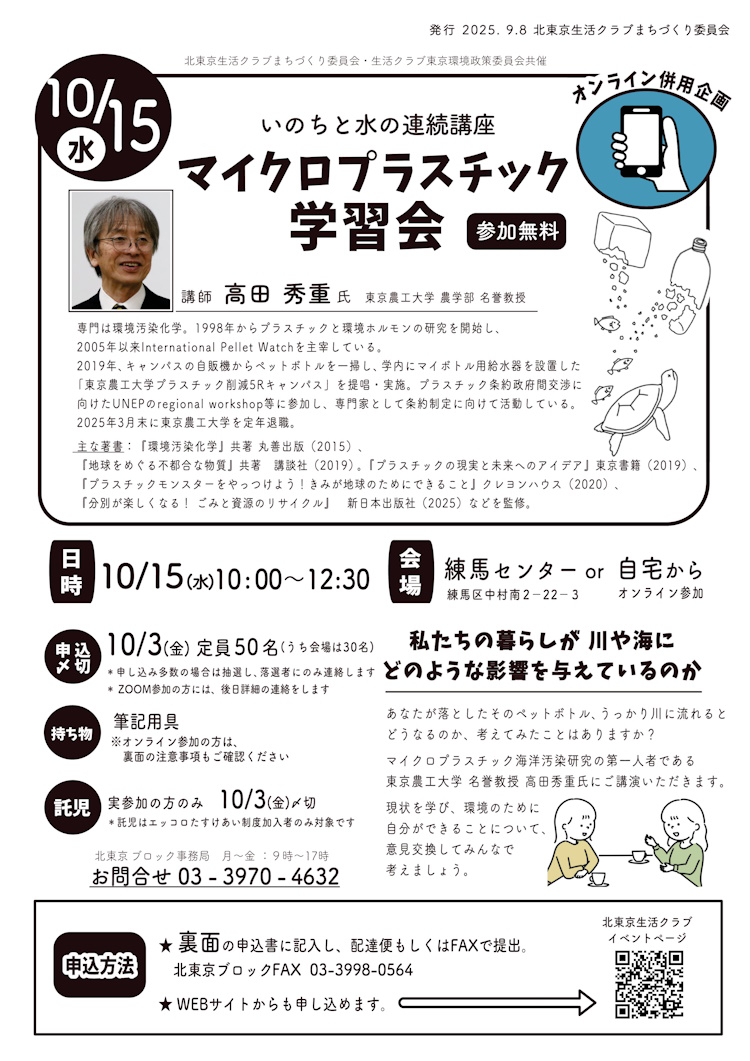 発行 2025. 9.8 北東京生活クラブまちづくり委員会
北東京生活クラブまちづくり委員会・生活クラブ東京環境政策委員会共催
10/15
水
オンライン併用企画
いのちと水の連続講座
マイクロプラスチック
学習会
参加無料
講師 高田 秀重 氏 東京農工大学 農学部 名誉教授
専門は環境汚染化学。1998年からプラスチックと環境ホルモンの研究を開始し、
2005年以来International Pellet Watchを主宰している。
2019年、キャンパスの自販機からペットボトルを一掃し、学内にマイボトル用給水器を設置した
「東京農工大学プラスチック削減5Rキャンパス」を提唱・実施。プラスチック条約政府間交渉に
向けたUNEPのregional workshop等に参加し、専門家として条約制定に向けて活動している。
2025年3月末に東京農工大学を定年退職。
主な著書：『環境汚染化学』共著 丸善出版（2015）、
『地球をめぐる不都合な物質』共著 講談社（2019）。『プラスチックの現実と未来へのアイデア』東京書籍（2019）、
『プラスチックモンスターをやっつけよう！きみが地球のためにできること』クレヨンハウス（2020）、
『分別が楽しくなる！ ごみと資源のリサイクル』 新日本出版社（2025）などを監修。
日時
10/15(水)10:00～12:30
会場
練馬センター or 自宅から
練馬区中村南2－22－3 オンライン参加
申込〆切
10/3(金) 定員50名(うち会場は30名)
＊申し込み多数の場合は抽選し、落選者にのみ連絡します
＊ ZOOM参加の方には、後日詳細の連絡をします
持ち物
筆記用具
※オンライン参加の方は、
裏面の注意事項もご確認ください
託児
実参加の方のみ 10/3(金)〆切
＊託児はエッコロたすけあい制度加入者のみ対象です
北東京ブロック事務局 月～金：9時～17時
お問合せ 03 - 3970 - 4632
私たちの暮らしが 川や海に
どのような影響を与えているのか
あなたが落としたそのペットボトル、うっかり川に流れると
どうなるのか、考えてみたことはありますか？
マイクロプラスチック海洋汚染研究の第一人者である
東京農工大学 名誉教授 高田秀重氏にご講演いただきます。
現状を学び、環境のために
自分ができることについて、
意見交換してみんなで
考えましょう。
申込方法
★ 裏面の申込書に記入し、配達便もしくはFAXで提出。
北東京ブロックFAX 03-3998-0564
★ WEBサイトからも申し込めます。
北東京生活クラブ
イベントページ